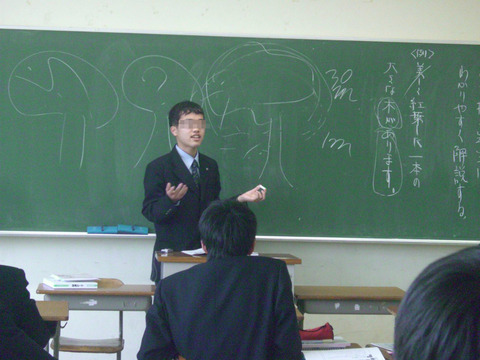 わかりやすく解説する。
〈例〉美しく紅葉した一本の
大きな木があります。
30m
1m
?